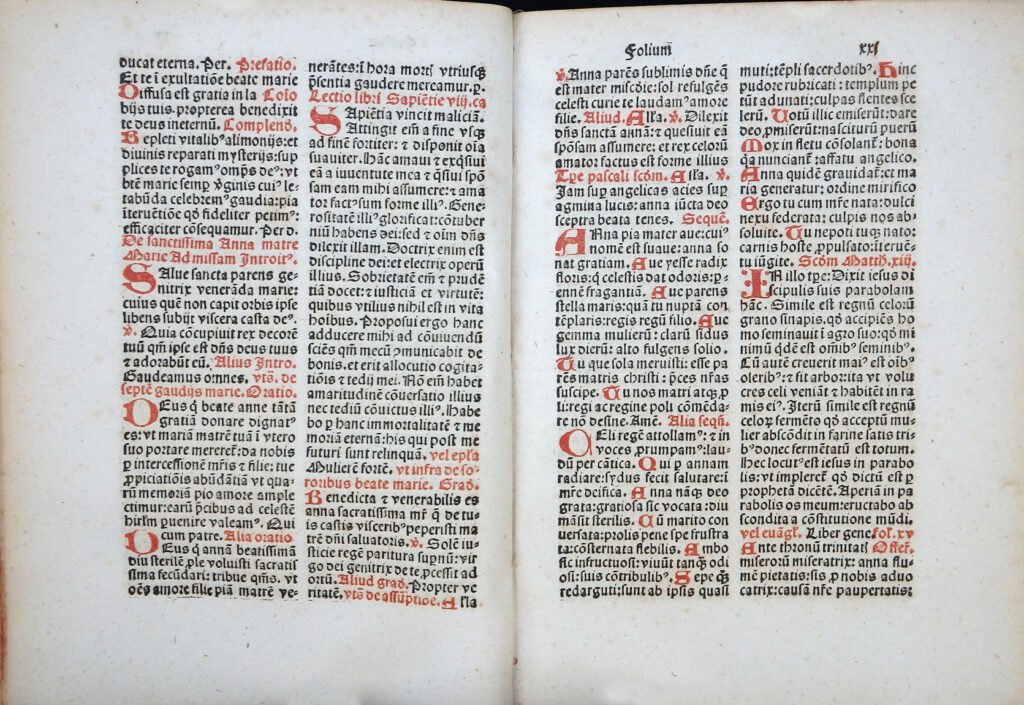 ducat eterna. Per. Prefatio.
Et te ī exultatiōe beate marie
Diffusa est gratia in la Cōio
bijs tuis: propterea benedixit
te deus ineternū. Complend.
Repleti vitalibꝰ alimonijs: et
diuinis reparati mysterijs: sup
plices te rogamꝰ omp̄s deꝰ: vt
btē marie semꝑ v̓ginis cuiꝰ le-
tabūda celebremꝰ gaudia: pia
īteruētiōe qd̄ fideliter petimꝰ:
efficaciter cōsequamur. Per d.
De sanctissima Anna matre
Marie Ad missam Introitꝰ.
SAlue sancta parens ge-
nitrix venerāda marie:
cuius quē non capit orbis ipse
libens subijt viscera casta deꝰ.
v̓. Quia cōcupiuit rex decorē
tuū qm̄ ipse est dn̄s deus tuus
et adorabūt eū. Alius Intro.
Gaudeamus omnes. vts̄. de
septē gaudijs marie. Oratio.
DEus q̄ beate anne tātā
gratiā donare dignat
es: vt mariā matrē tuā ī vtero
suo portare mereret̄: da nobis
ꝑ intercessionē mr̄is et filie: tue
ꝓpiciatiōis abūdātiā vt qua-
rū memoriā pio amore ample
ctimur: earū p̄cibus ad celestē
hirlm̄ ꝑuenire valeamꝰ. Qui
cum patre. Alia oratio
DEus q̄ annā beatissimā
diu sterilē ꝓle voluisti sacratis
sima fecūdari: tribue qm̄s. vt
oēs amore filie piā matrē ve-
nerātes: ī hora mortꝭ vtriusqꝫ
p̄sentia gaudere mereamur. ꝑ.
Lectio libri Sapiētie viij. ca
SApiētia vincit maliciā.
Attingit em̄ a fine vsqꝫ
ad finē fortiter: et disponit oīa
suauiter. Hāc amaui et exq̄siui
eā a iuuentute mea et q̄siui spō
sam eam mihi assumere: et ama
tor factꝰ sum forme illiꝰ. Gene-
rositatē illiꝰ glorificat: cōtuber
niū habens dei: sed et oīm dn̄s
dilexit illam. Doctrix enim est
discipline dei: et electrix operū
illius. Sobrietatē em̄ et prudē
tiā docet: et iusticiā et virtutē:
quibus vtilius nihil est in vita
hoībus. Proposui ergo hanc
adducere mihi ad cōuiuendū
sciēs qm̄ mecū ꝯmunicabit de
bonis. et erit allocutio cogita-
tiōis et tedij mei. Nō em̄ habet
amaritudinē cōuersatio illius
nec tediū cōuictus illiꝰ. Habe
bo ꝑ hanc immortalitatē et me
moriā eternā: his qui post me
futuri sunt relinquā. vel ep̄la
Mulierē fortē. vt infra de so-
roribus beate marie. Grad.
Benedicta et venerabilis es
anna sacratissima mr̄ q̄ de tu-
is castis visceribꝰ peperisti ma
trē dn̄i saluatoris. v̓. Solē iu-
sticie regē paritura sup̄nū: vir
go dei genitrix de te ꝓcessit ad
ortū. Aliud grad. Propter ve
ritatē. vts̄ de assūptiōe. Alla
Folium xxj
v̓. Anna parēs sublimis dn̄e q̄
est mater miscdie: sol refulgēs
celesti curie te laudamꝰ amore
filie. Aliud. Alla. v̓. Dilexit
dn̄s sanctā annā: et quesiuit eā
spōsam assumere: et rex celorū
amator factus est forme illius
Tꝑe pascali scdm. Alla. v̓.
Jam sup angelicas acies sup
agmina lucis: anna iūcta deo
sceptra beata tenes. Sequē.
ANna pia mater aue: cuiꝰ
nomē est suaue: anna so
nat gratiam. Aue yesse radix
floris: q̄ celestis dat odoris: ꝑ-
ennē fragantiā. Aue parens
stella maris: quā tu nuptā con
tēplaris: regis regū filio. Aue
gemma mulierū: clarū sidus
lux dierū: alto fulgens solio.
Tu que sola meruisti: esse pa
rēs matris christi: p̄ces nr̄as
suscipe. Tu nos matri atqꝫ ꝓ
li: regi ac regine poli cōmēda-
re nō desine. Amē. Alia seqū.
CEli regē attollamꝰ: et in
voces ꝓrumpamꝰ: lau-
dū per cātica. Qui ꝑ annam
radiare: sydus fecit salutare: ī
mr̄e deifica. Anna nāqꝫ deo
grata: gratiosa sic vocata: diu
māsit sterilis. Cū marito con
uersata: prolis pene spe frustra
ta: cōsternata flebilis. Ambo
sic infructuosi: viuūt tanqꝫ odi
osi: suis cōtribulibꝰ. Sepe qꝫ
redarguti: sunt ab ipsis quasi
muti: tēpli sacerdotibꝰ. Hinc
pudore rubricati: templum pe
tūt adunati: culpas flentes sce
lerū. Votū illic emiserūt: dare
deo, ꝓmiserūt: nasciturū puerū
Mox in fletu cōsolant̄: bona
q̄a nunciant̄: affatu angelico.
Anna quidē grauidat̄: et ma
ria generatur: ordine mirifico
Ergo tu cum mr̄e nata: dulci
nexu federata: culpis nos ab-
soluite. Tu nepoti tuqꝫ nato:
carnis hoste ꝓpulsato: īteruē-
tu iūgite. Scdm Matth. xiij.
IN illo tꝑe: Dixit iesus di
scipulis suis parabolam
hāc. Simile est regnū celorū
grano sinapis. qd̄ accipiēs ho
mo seminauit ī agro suo: qd̄ mi
nimū qdē est omībꝰ seminibꝰ.
Cū autē creuerit maiꝰ est oībꝰ
oleribꝰ: et fit arbor: ita vt volu
cres celi veniāt et habitēt in ra
mis eiꝰ. Iterū simile est regnū
celoꝝ fermēto qd̄ acceptū mu-
lier abscōdit in farine satis tri
bꝰ donec fermētatū est totum.
Hec locutꝰ est iesus in parabo
lis: vt impleret̄ qd̄ dictū est ꝑ
prophetā dicētē. Aperiā in pa
rabolis os meum: eructabo ab
scondita a cōstitutione mūdi.
vel euāgł. Liber gene. fol. xv
Ante thronū trinitatꝭ Offer̄.
miserorū miseratrix: anna flu-
mē pietatis: sis ꝓ nobis aduo
catrix: causā nr̄e paupertatis: